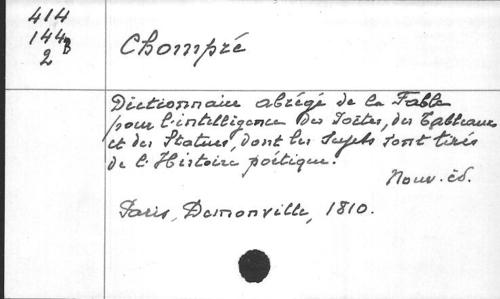 414
144B
2
Chompré
Dictionnaire abrégé de la Fable
pour l'intelligence des Poètes, des Tableaux
et des Statues, dont les Sujets sont tirés
de l'Histoire poétique.
Nouv. éd.
Paris, Demonville, 1810.